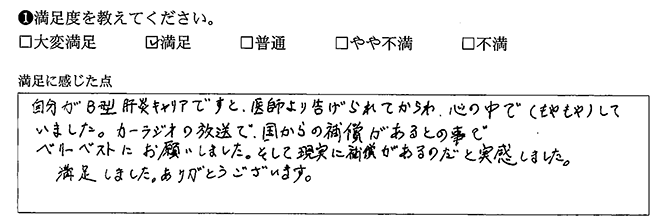 ❶満足度を教えてください。
□大変満足 ☑満足 □普通 □やや不満 □不満
満足に感じた点
自分がB型肝炎キャリアですと、医師より告げられてからわ、心の中で(もやもや)して
いました。カーラジオの放送で、国からの補償があるとの事で
ベリーベストにお願いしました。そして現実に補償があるのだと実感しました。
満足しました。ありがとうございます。